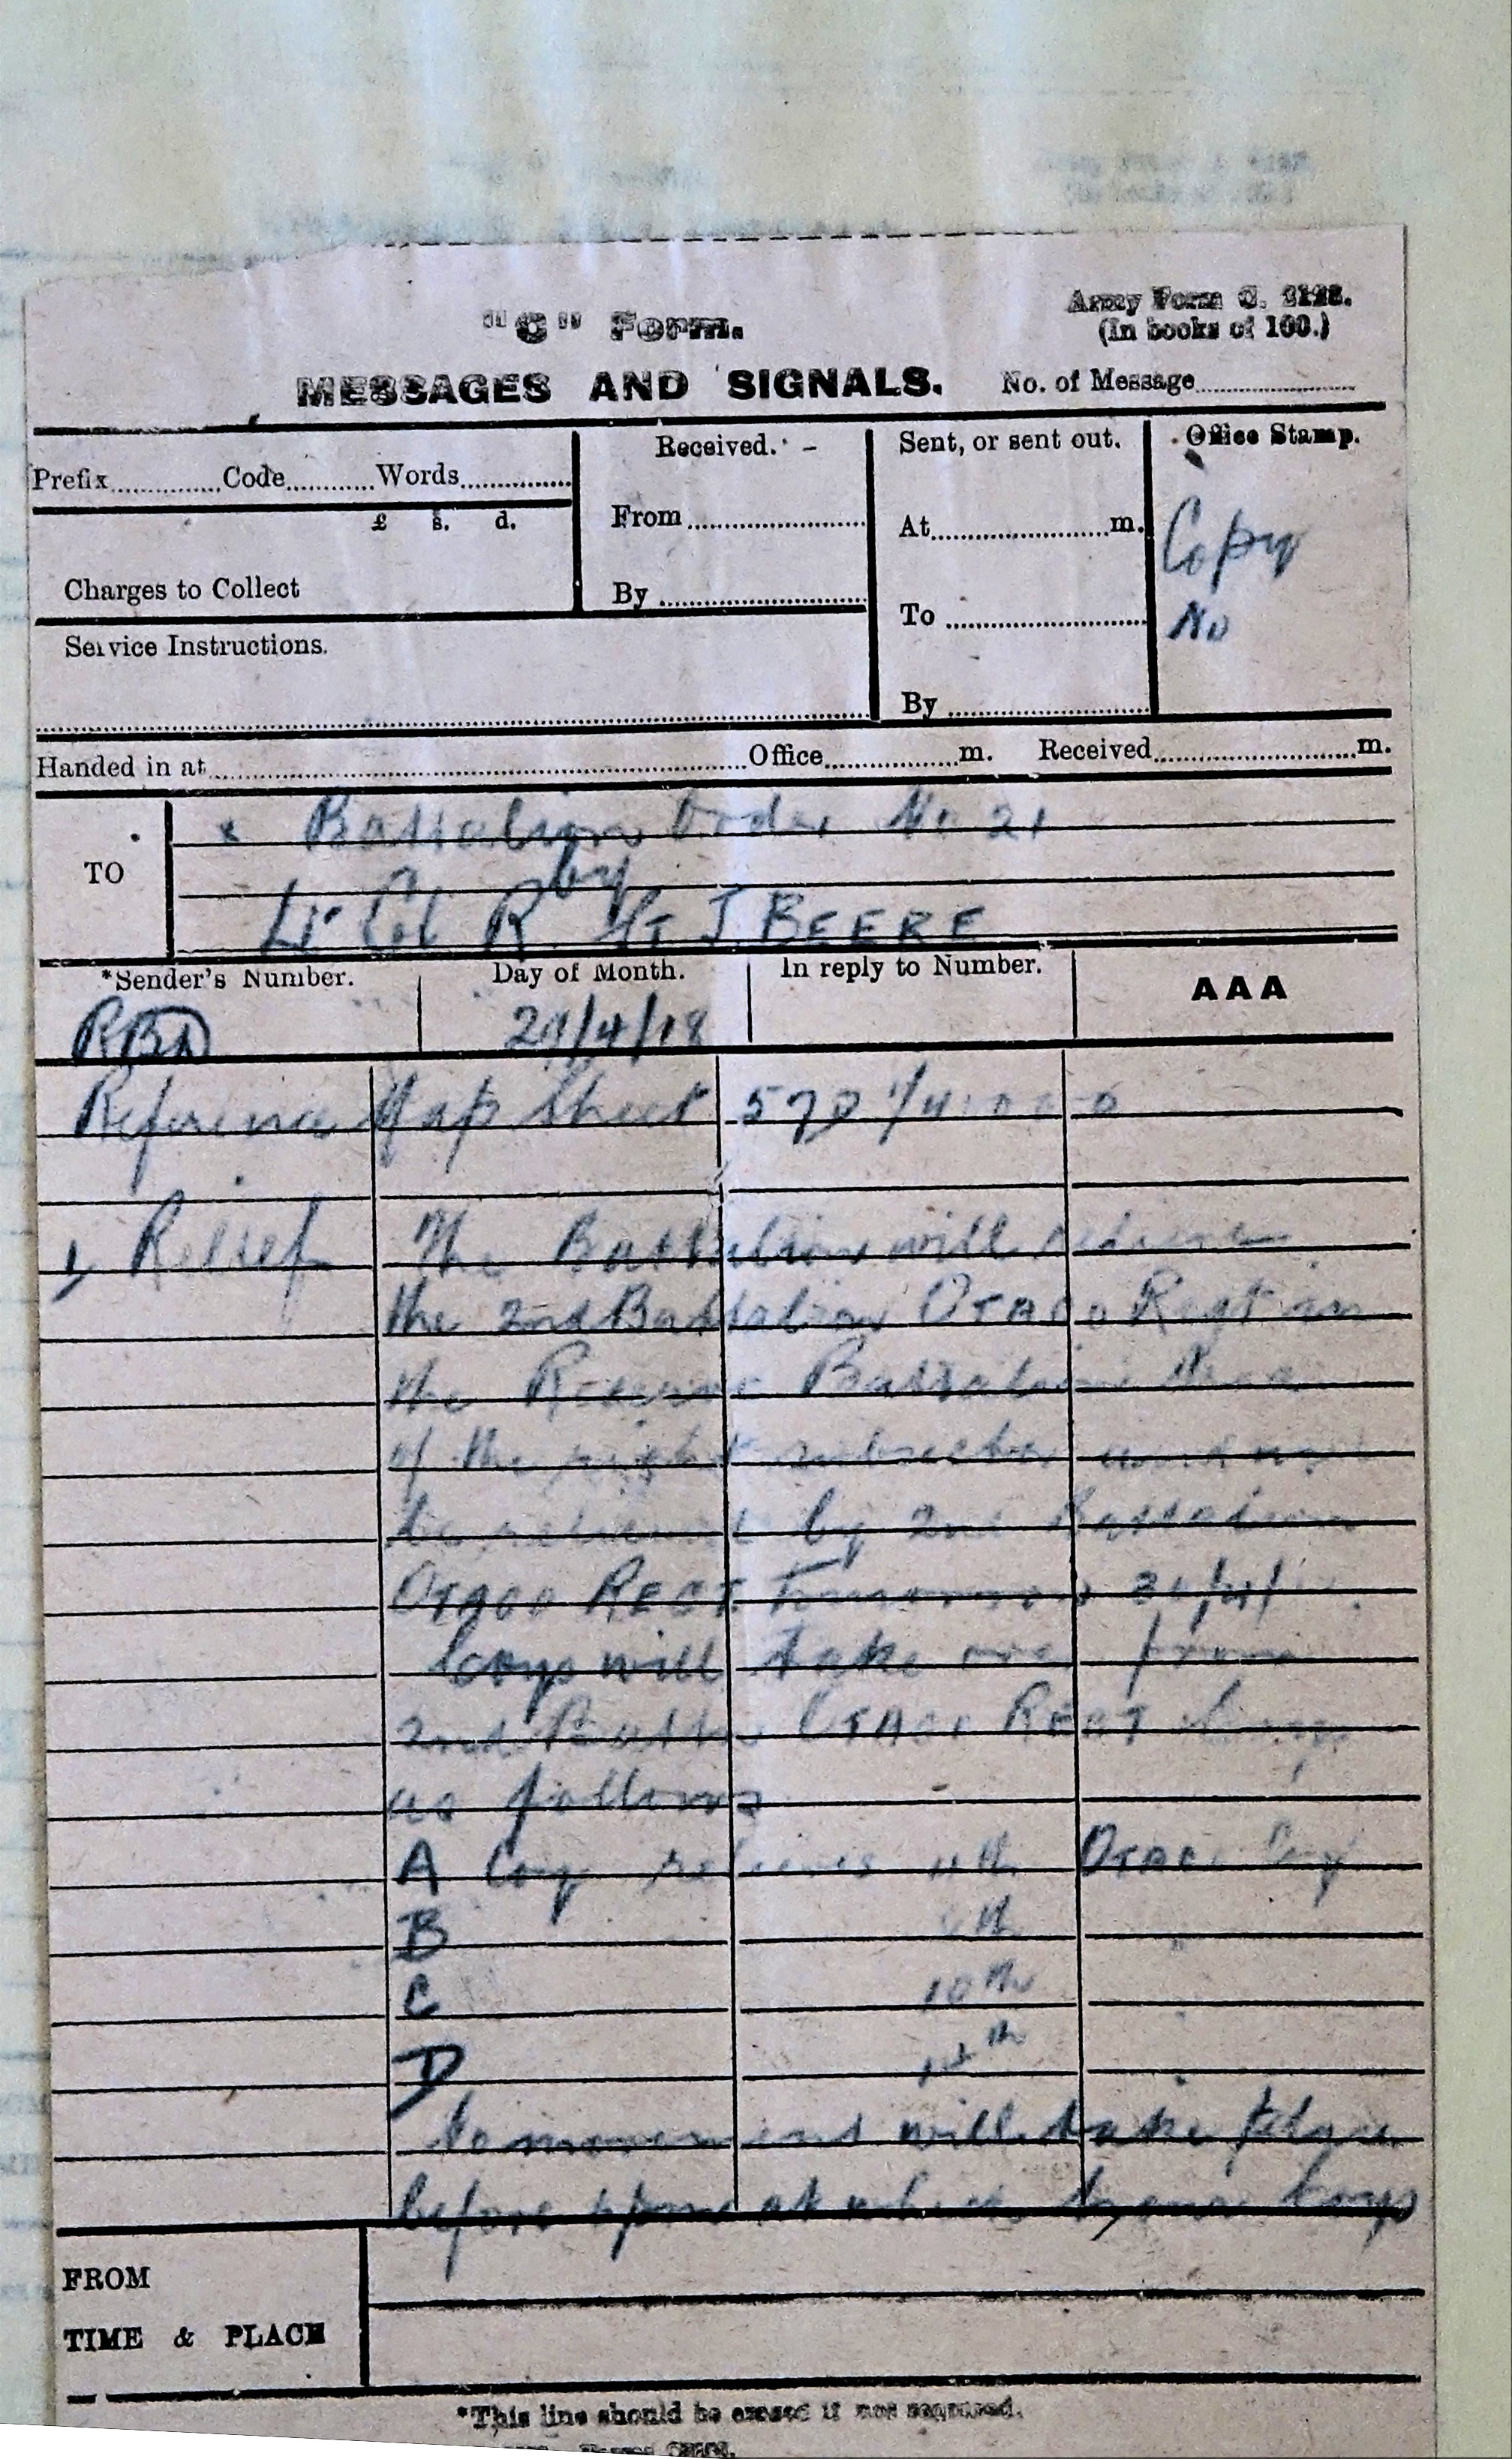 "C" Form.
Army Form C. 2123.
(In books of 100.)
MESSAGES AND SIGNALS.
No. of Message
Prefix Code Words
£ s. d.
Charges to Collect
Service Instructions.
Received.
From
By
Sent, or sent out.
At m.
To
By
Office Stamp.
Copy
No
Handed in at Office m. Received m.
TO
x Battalion Order No 21
by
Lt Col R St J BEERE
*Sender's Number.
Day of Month.
In reply to Number.
AAA
29/4/18
Reference Map Sheet 57D 1/40000
1, Relief The Battalion will relieve
the 2nd Battalion OTAGO Regt in
the Reserve Battalion Area
of the right subsector and
be relieved by 2nd Battalion
OTAGO REGT Tomorrow
Coys will take over from
2nd Battn OTAGO REGT Coys
as follows
A Coy relieves OTAGO Coy
B
C 10th
D
No movement will take place
before at which Coys
FROM
TIME & PLACE
*This line should be erased if not required.